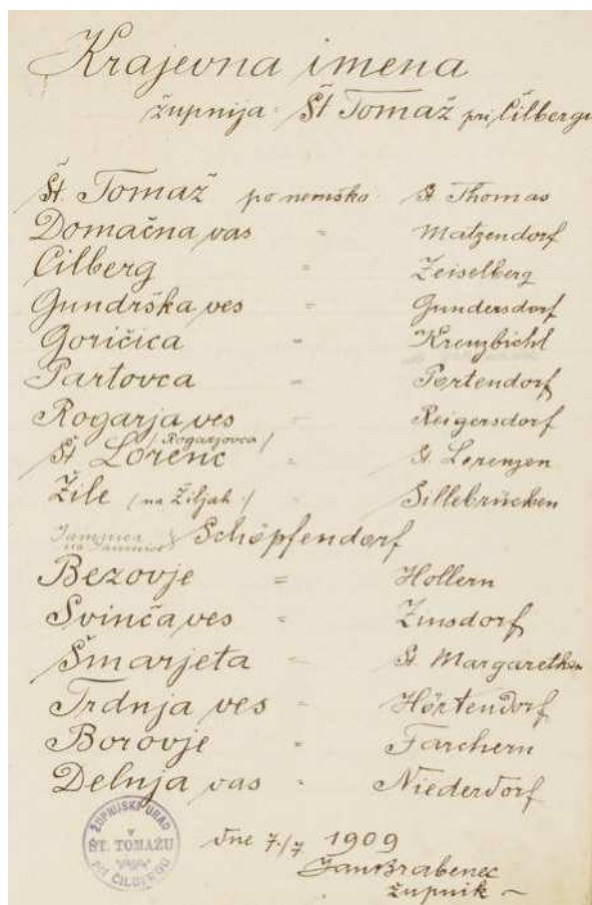 Krajevna imena
župnija: Št Tomaž pri Čilbergu
Št. Tomaž po nemško: St. Thomas
Domačna vas = Matzendorf
Čilberg Zeiselberg
Gundrška ves = Gundersdorf
Goričica = Kreuzbichl
Partovca = Portendorf
Rogarja ves Reigersdorf
/Rogarjovca/
Št Lorenc = St. Lorenzen
Žile (na Žiljah) Sillebrücken
Jamnica
na Jamnici Schöpfendorf
Bezovje = Hollern
Svinča ves = Zinsdorf
Šmarjeta = St. Margarethen
Trdnja ves = Hörtendorf
Borovje = Farchern
Delnja vas = Niederdorf
dne 7./7 1909
Jan Brabenec
župnik
ŽUPNIJSKI URAD
v
ŠT. TOMAŽU
pri ČILBERGU